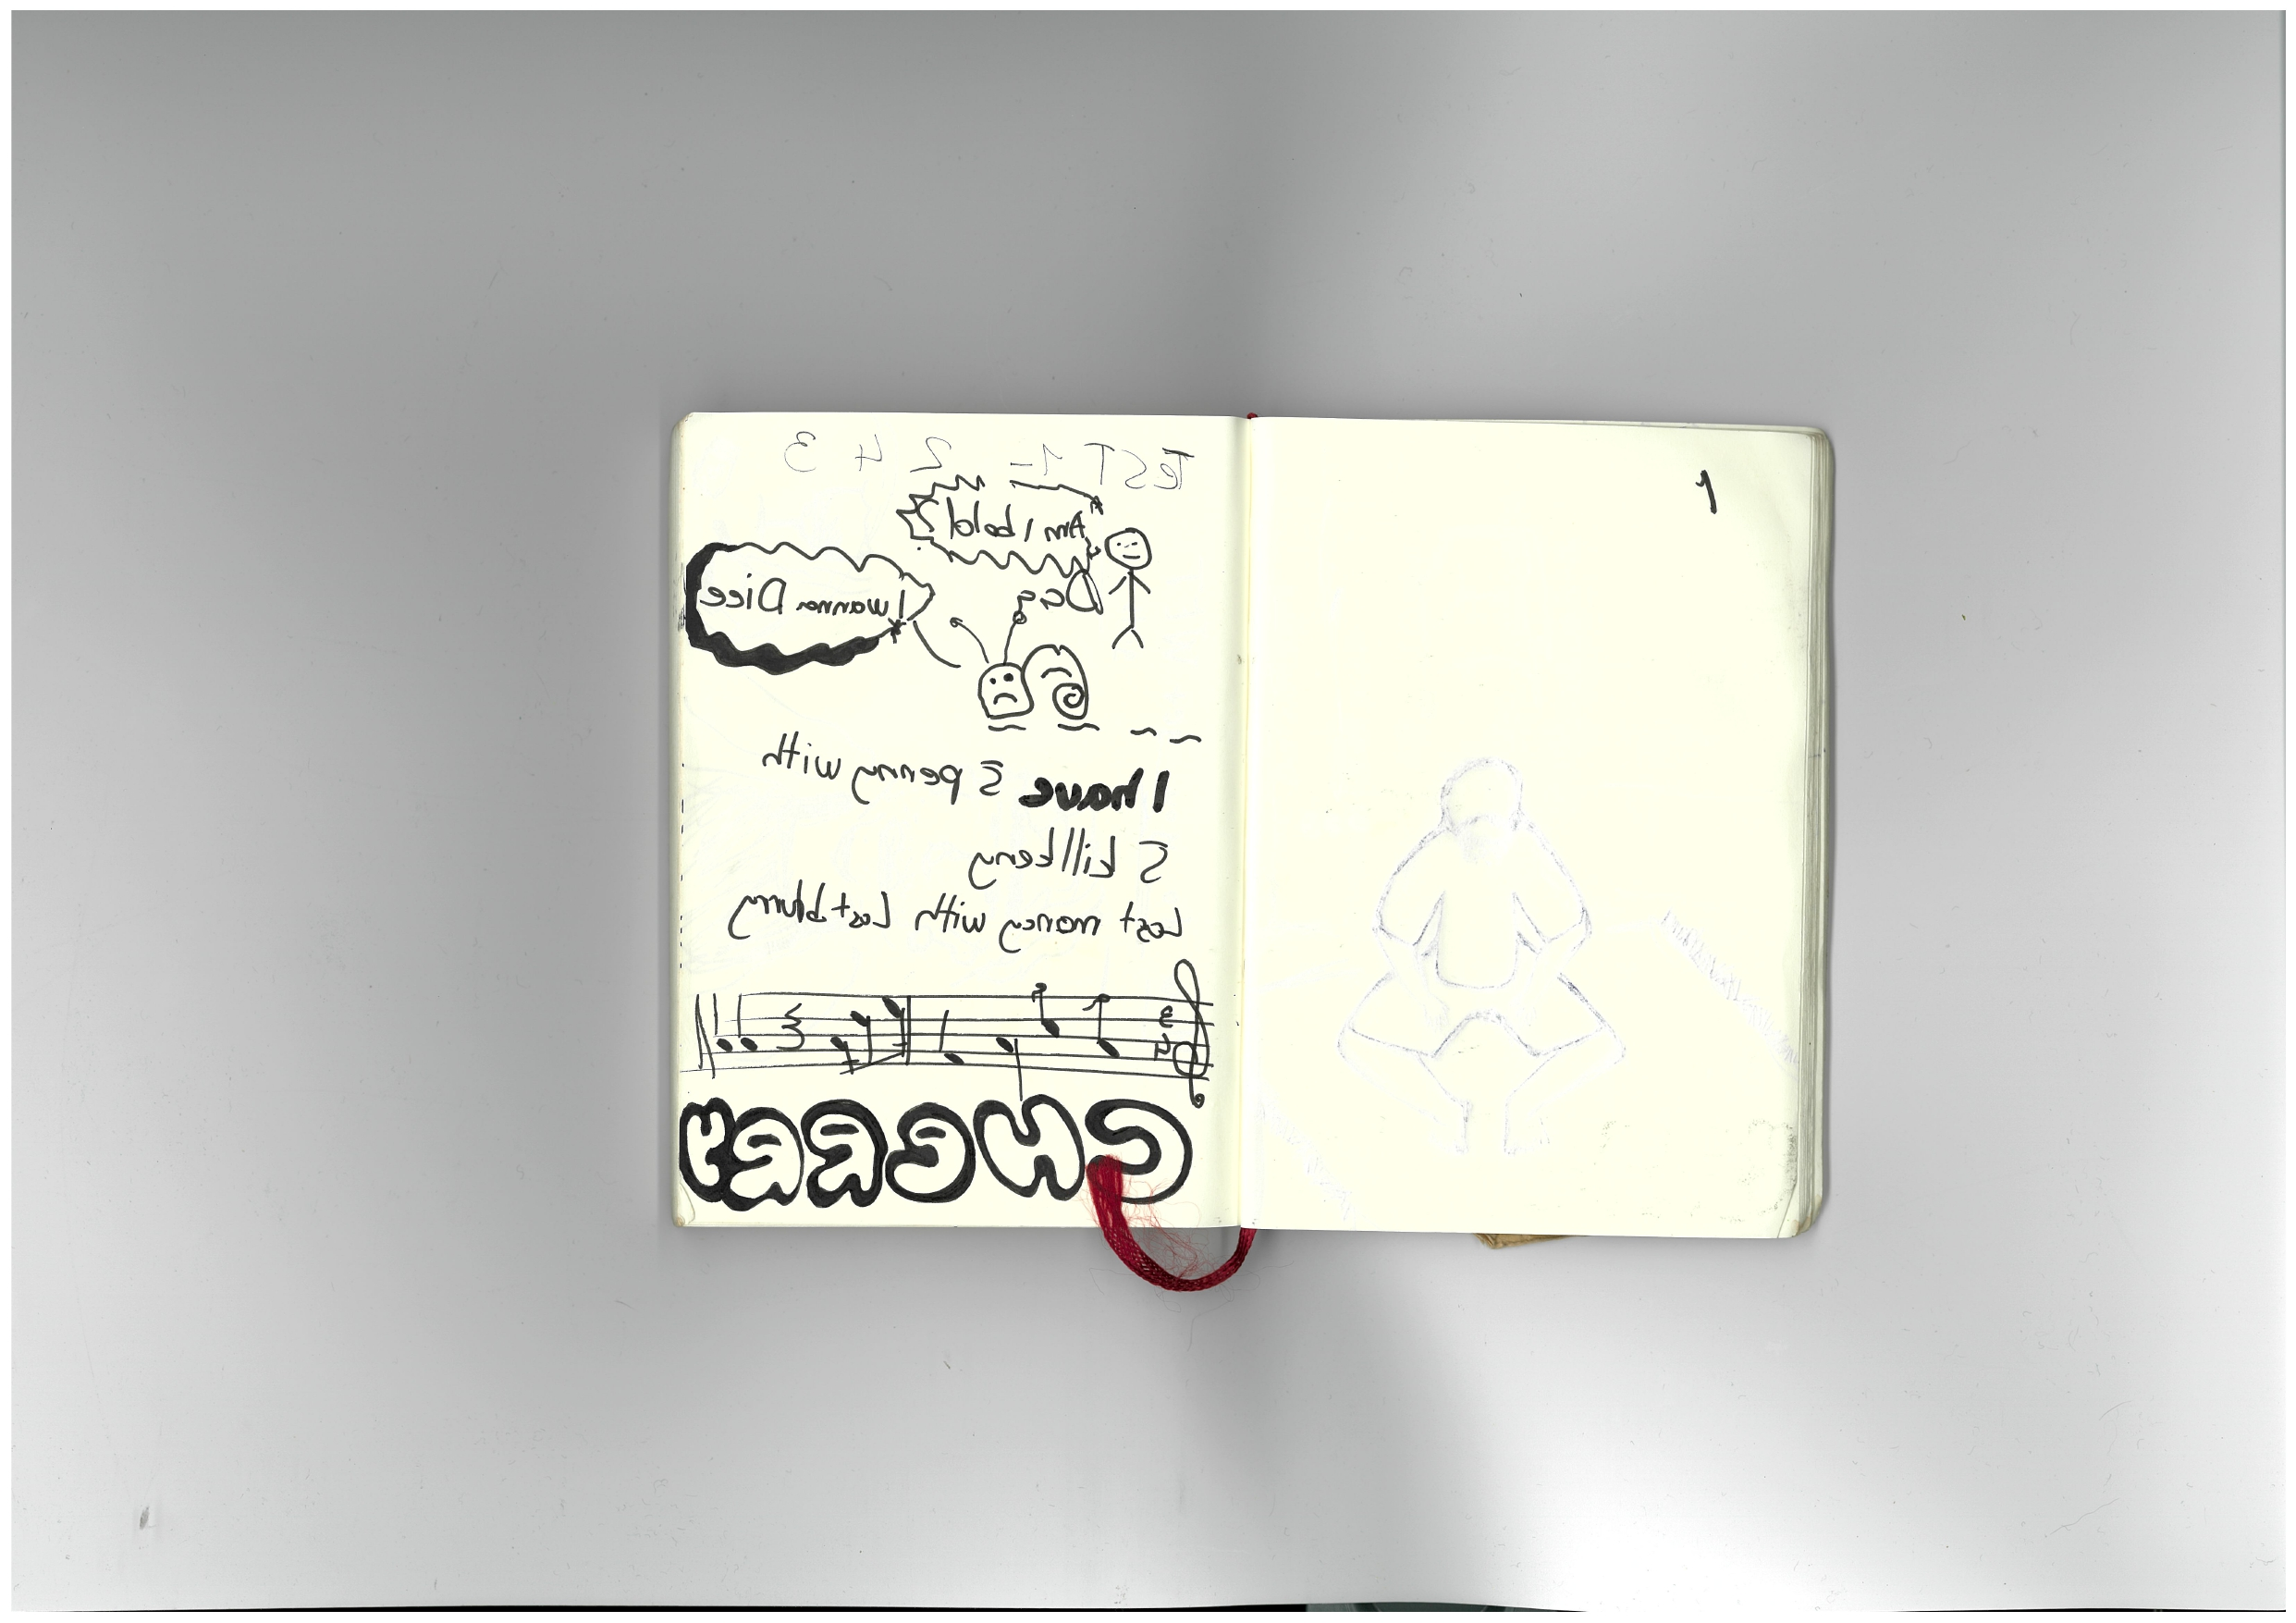 TEST 1- 2 4 3
Am I bold?
I wanna Diee
I have 5 penny with
5 killkeny
Lost money with Lost blurry
3
4
CHERRY
1